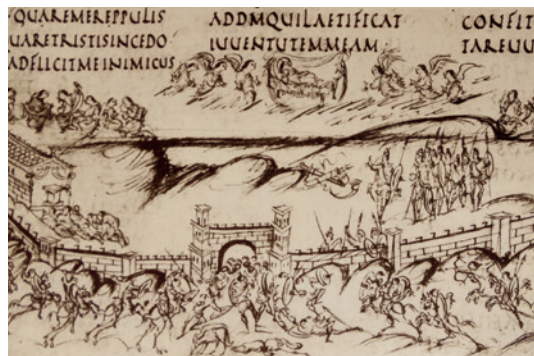 QUAREMEREPPULIS
UARETRISTISINCEDO
ADFLICITMEINIMICUS
ADDMQUILAETIFICAT
IUUENTUTEMMEAM
CONFIT
TAREUU